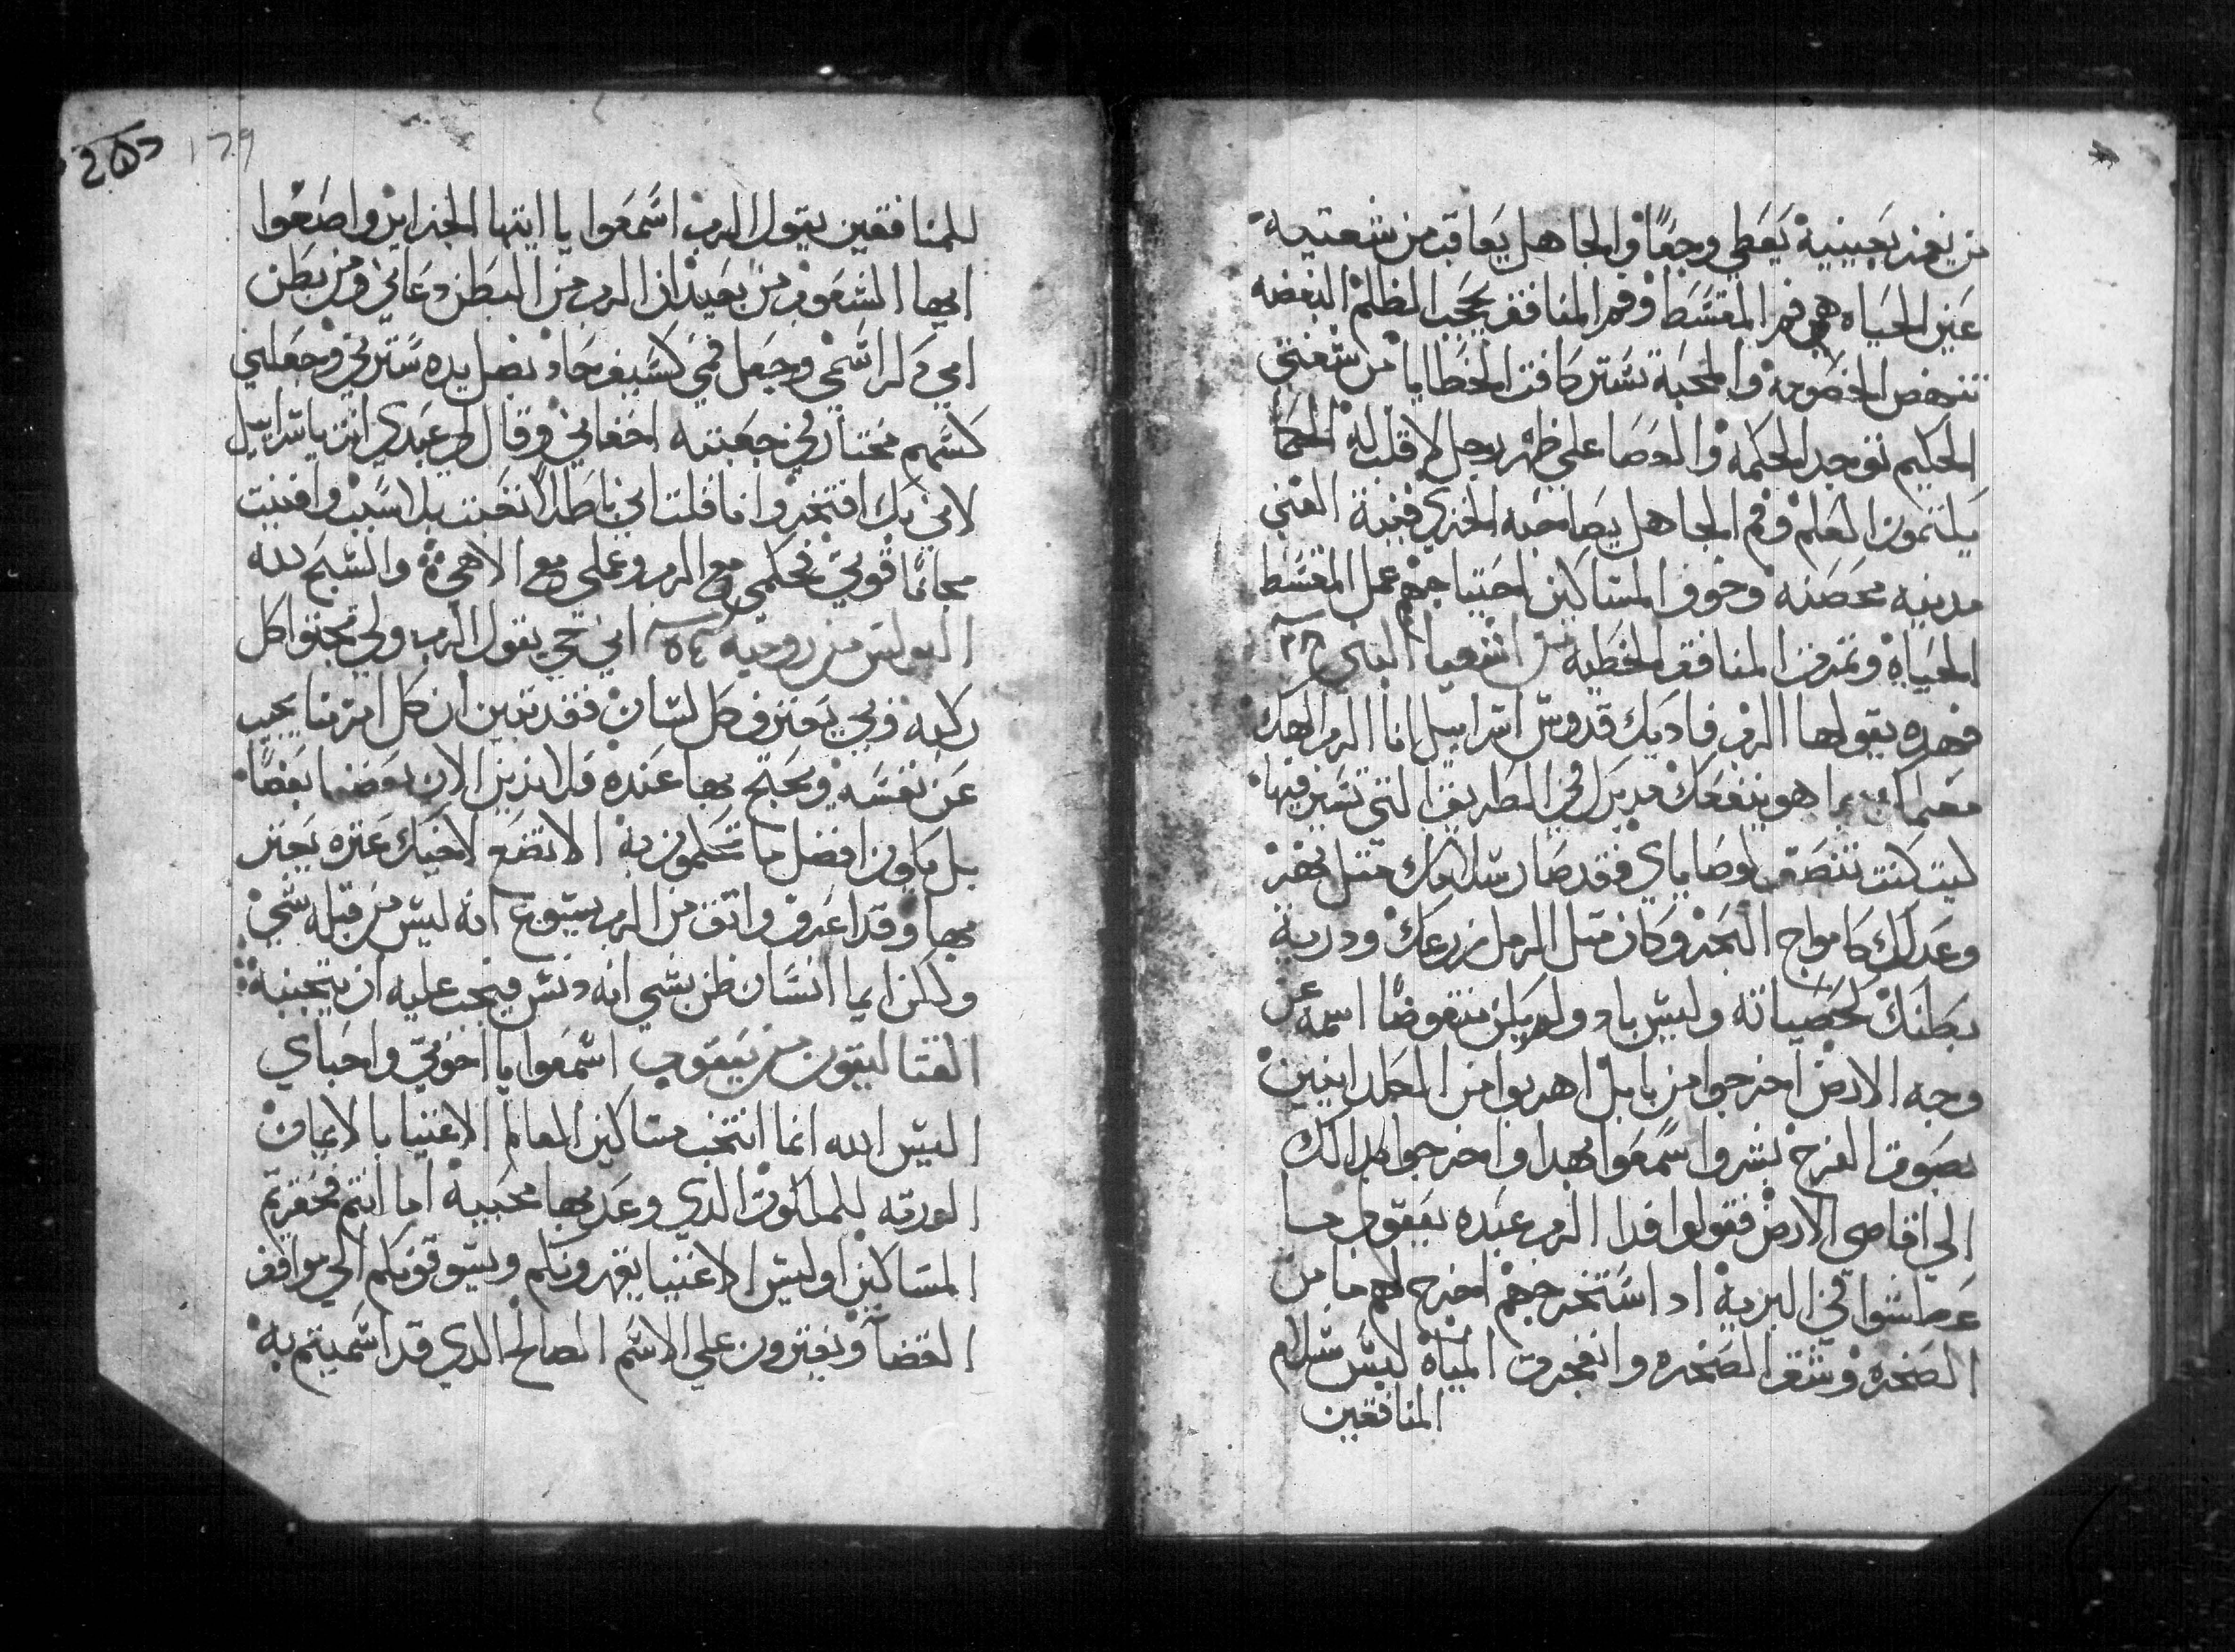 من يغمز بعينيه يعطي وجعًا والجاهل يعاقب من شفتيه
عين الحياه هي فم المقسط وفم المنافق يحجب الظلم البغضه
تنهض الخصومه والمحبة تستر كافت الخطايا من شفتي
الحكيم توجد الحكمه والعصا على ظهر رجل لا قلب له الحكما
يلتمون العلم وفم الجاهل يصاحبه الخزي قنية الغني
مدينه محصنه وخوف المساكين احتياجهم عمل المقسط
الحياه وتمرة المنافق الخطيه من اشعيا النبي
فهده يقولها الرب فاديك قدوس اسراييل انا الرب الهك
معلمك بما هو ينفعك مدبرك في الطريق التي تسير فيها
ليت كنت تنصت لوصاياي فقد صار سلامك مثل نهر
وعدلك كامواج البحر وكان مثل الرمل زرعك ودرية
بطنك كحصياته وليس باد ولم يكن ينقرضا اسمه عن
وجه الارض اخرجوا من بابل اهربوا من الكلدانيين
بصوت الفرح بشروا سمعوا بهدا واخرجوا كدالك
الي اقاصي الارض فقولوا فدا الرب عبده يعقوب ما
عطشوا في البرية اد استخرجهم اخرج لهم ما من
الصخره وشق الصخره وانفجرت المياه ليس سلام
المنافقين
205 179
للمنافقين يقول الرب اسمعوا يا ايتها الجزاير واصغوا
ايها الشعوب من بعيد ان الرب من البطن دعاني ومن بطن
امي دكر اسمي وجعل فمي كسيف حاد بظل يده سترني وجعلني
كسهم مختار في جعبته اخفاني وقال لي عبدي انت ياسراييل
لاني بك افتخر وانا قلت اني باطلا تعبت بلا سبب وافنيت
مجانًا قوتي فحكمي مع الرب وعملي مع الاهي والسبح لله
البولس من رومية ٥٤ اني حي يقول الرب ولي تجتوا كل
ركبه وبي يعترف كل لسان فقد تبين ان كل امرنا يجيب
عن نفسه ويحتج بها عنده فلا ندين الان بعضنا بعضًا
بل كونوا افضل ما تحكمون به الا تضع لاخيك عثره يعثر
بها وقد اعرف واتق من الرب يسوع انه ليس من قبله شي
ولكن ايما انسان ظن بشي انه دنس فيجب عليه ان يتجنبه
القتاليقون من يعقوب اسمعوا يا اخوتي واحباي
اليس الله انما انتخب مساكين العالم الاغنيا بالايمان
الورثه للملكوت الدي وعد بها محبيه اما انتم فحقرتم
المساكين اوليس الاغنيا يقهرونكم ويسوقونكم الي مواقف
القضآ ويفترون علي الاسم الصالح الدي قد اسميتم به